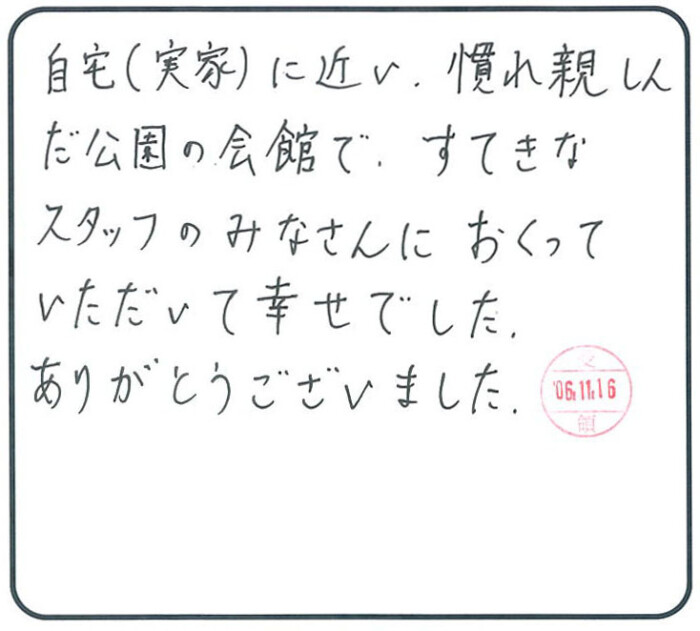 自宅(実家)に近い、慣れ親しん
だ公園の会館で、すてきな
スタッフのみなさんに おくって
いただいて幸せでした.
ありがとうございました.
受
'06.11.16
領